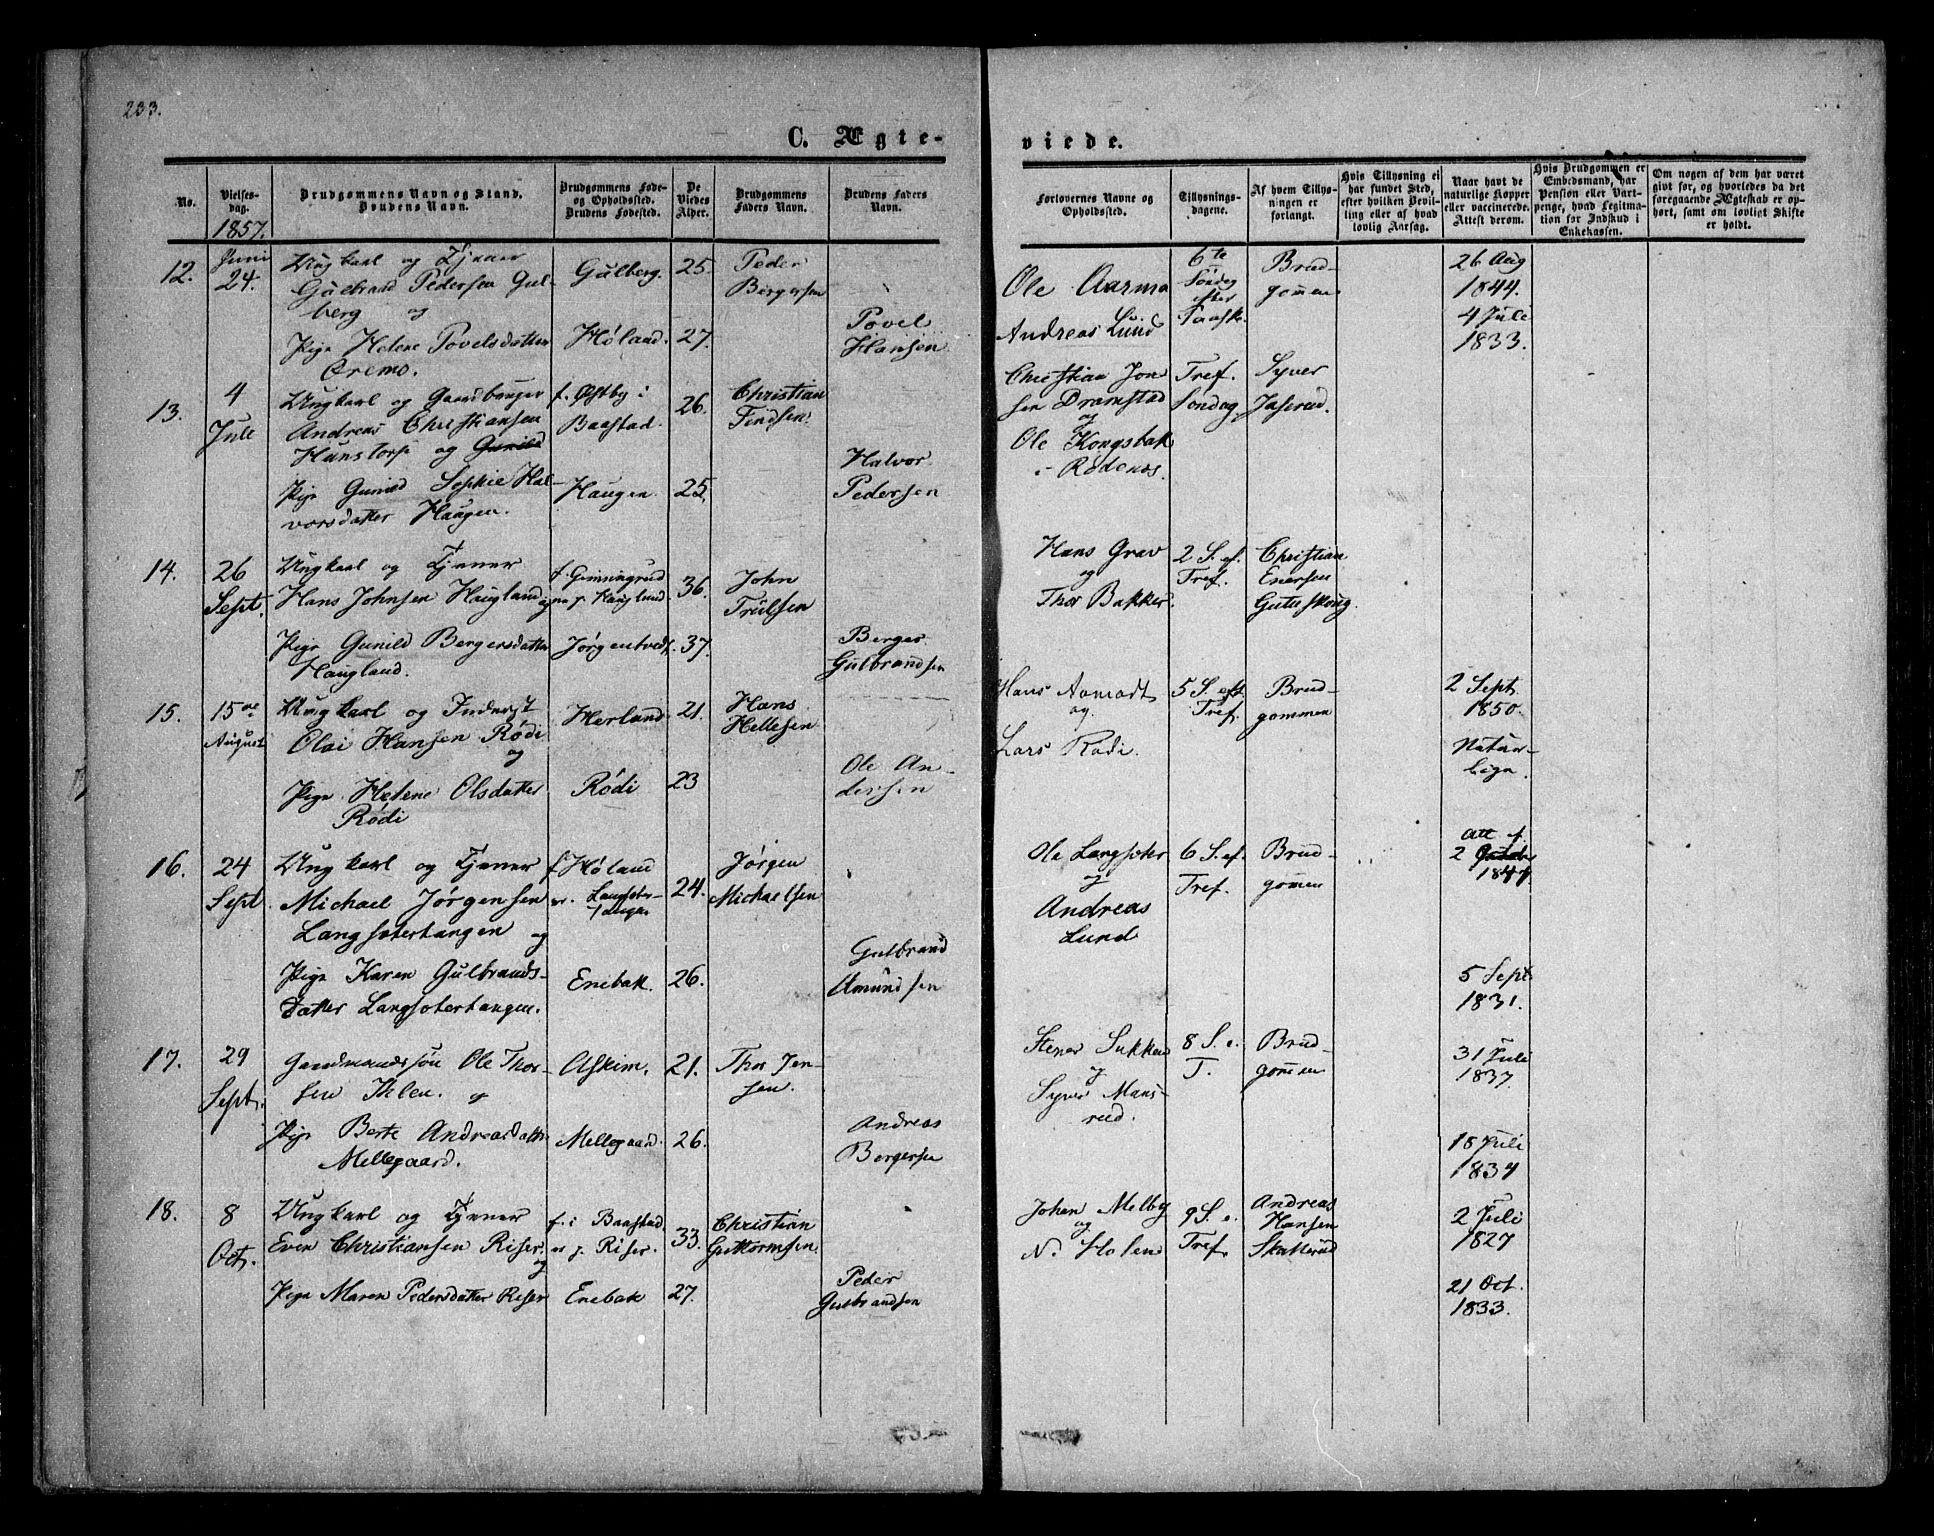 233.
C. Ægte-
viede.
No.
Vielses-
dag.
1857.
Brudgommens Navn og Stand.
Brudens Navn.
Brudgommens Føde-
og Opholdssted.
Brudens Fødested.
De
Viedes
Alder.
Brudgommens
Faders Navn.
Brudens Faders
Navn.
Forlovernes Navne og
Opholdssted.
Tillysnings-
dagene.
Af hvem Tillys-
ningen er
forlangt.
Hvis Tillysning ei
har fundet Sted,
efter hvilken Bevil-
ling eller af hvad
lovlig Aarsag.
Naar havt de
naturlige Kopper
eller vaccinerede.
Attest derom.
Hvis Brudgommen er
Embedsmand, har
Pension eller Vart-
penge, hvad Legitima-
tion for Indskud i
Enkekassen.
Om nogen af dem har været
gift før, og hvorledes da det
foregaaende Ægteskab er op-
hørt, samt om lovligt Skifte
er holdt.
12.
Juni
24.
Ungkarl og Tjener
Gulbrand Pedersen Gul-
berg og
Pige Helene Povelsdatter
Øremo.
Gulberg.
Høland.
25.
27.
Peder
Bergersen
Povel
Hansen
Ole Aarmo
Andreas Lund
6te
Søndag
efter
Paask.
Brud-
gommen
26 Aug
1844.
4 Juli
1833.
13.
4
Juli
Ungkarl og Gaardbruger
Andreas Christiansen
Hanstorp og Gunild
Pige Gunild Sophie Hal-
vorsdatter Haugen.
f. Østby i
Baastad.
Haugen.
26.
25.
Christian
Findsen.
Halvor
Pedersen
Christian Jon
sen Dramstad
og
Ole Kongsbak
i Rødenæs.
Tref.
Søndag
Syver
Jaserud.
14.
26
Sept.
Ungkarl og Tjener
Hans Johnsen Haugland og
Pige Gunild Bergersdatter
Haugland.
f. Gimningrud
p. Haugland.
Jørgentvedt.
36.
37.
John
Trulsen
Berger
Gulbrandsen
Hans Grav
og
Thor Bakker.
2 S. ef.
Tref.
Christian
Enersen
15.
15de
August
Ungkarl og Inderst
Olai Hansen Rødi
og
Pige Helene Olsdatter
Rødi
Herland
Rødi
21.
23
Hans
Hellesen
Ole An-
dersen
Hans Aamodt
og
Lars Rødi.
5 S. eft.
Tref.
Brud-
gommen
2 Sept.
1850.
Natur-
lige.
16.
24
Sept.
Ungkarl og Tjener
Michael Jørgensen
Langsotertangen og
Pige Karen Gulbrands-
datter Langsotertangen.
f Høland
Langsoter-
tangen
Enebak.
24.
26.
Jørgen
Michaelsen
Gulbrand
Amundsen
Ole Langsoter
og
Andreas
Lund
6 S. ef.
Tref.
Brud-
gommen
Att. f.
2
1847
5 Sept.
1831.
17.
29
Sept.
Gaardmandssøn Ole Thor-
sen Ihlen. og
Pige Berte Andreasdatter
Mellegaard.
Askim.
Mellegaard.
21.
26.
Thor Jen-
sen.
Andreas
Bergersen
Stener Sukken
og
Syver Mans-
rud.
8 S. e.
T.
Brud-
gommen
31 Juli
1837.
18 Juli
1834
18.
8
Oct.
Ungkarl og Tjener
Even Christiansen Riser,
og
Pige Maren Pedersdatter Riser
f. i Baastad
p. Riser.
Enebak
33.
27.
Christian
Guttormsen.
Peder
Gulbrandsen
Johan Melby
og
N. Holen
9 S. e.
Tref.
Andreas
Hansen
Skatterud
2 Juli
1827
21 Oct.
1833.